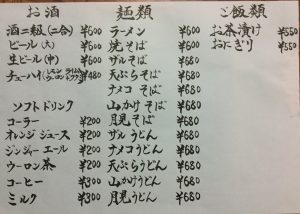 お酒
酒二級(二合) ¥600
ビール(大) ¥600
生ビール(中) ¥600
チューハイ(レモン ライム ウーロン トマト) ¥480
ソフトドリンク
コーラー ¥200
オレンジジュース ¥200
ジンジャーエール ¥200
ウーロン茶 ¥200
コーヒー ¥300
ミルク ¥300
麺類
ラーメン ¥600
焼そば ¥600
ザルそば ¥680
天ぷらそば ¥680
ナメコそば ¥680
山かけそば ¥680
月見そば ¥680
ザルうどん ¥680
ナメコうどん ¥680
天ぷらうどん ¥680
山かけうどん ¥680
月見うどん ¥680
ご飯類
お茶漬け ¥550
おにぎり ¥550